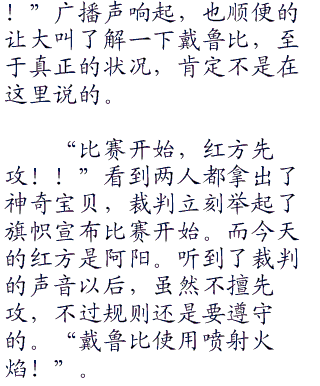 ！”广播声响起，也顺便的
让大叫了解一下戴鲁比，至
于真正的状况，肯定不是在
这里说的。
“比赛开始，红方先
攻！！”看到两人都拿出了
神奇宝贝，裁判立刻举起了
旗帜宣布比赛开始。而今天
的红方是阿阳。听到了裁判
的声音以后，虽然不擅先
攻，不过规则还是要遵守
的。“戴鲁比使用喷射火
焰！”。